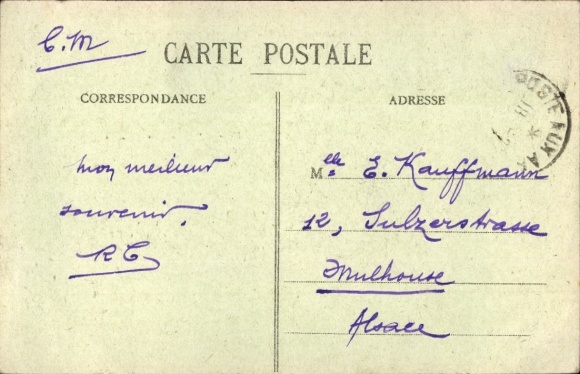 C.M
CARTE POSTALE
CORRESPONDANCE
ADRESSE
mon meilleur
souvenir.
RC
Mlle E. Kauffmann
12, Sulzerstrasse
Mulhouse
Alsace
POSTE AUX A
18